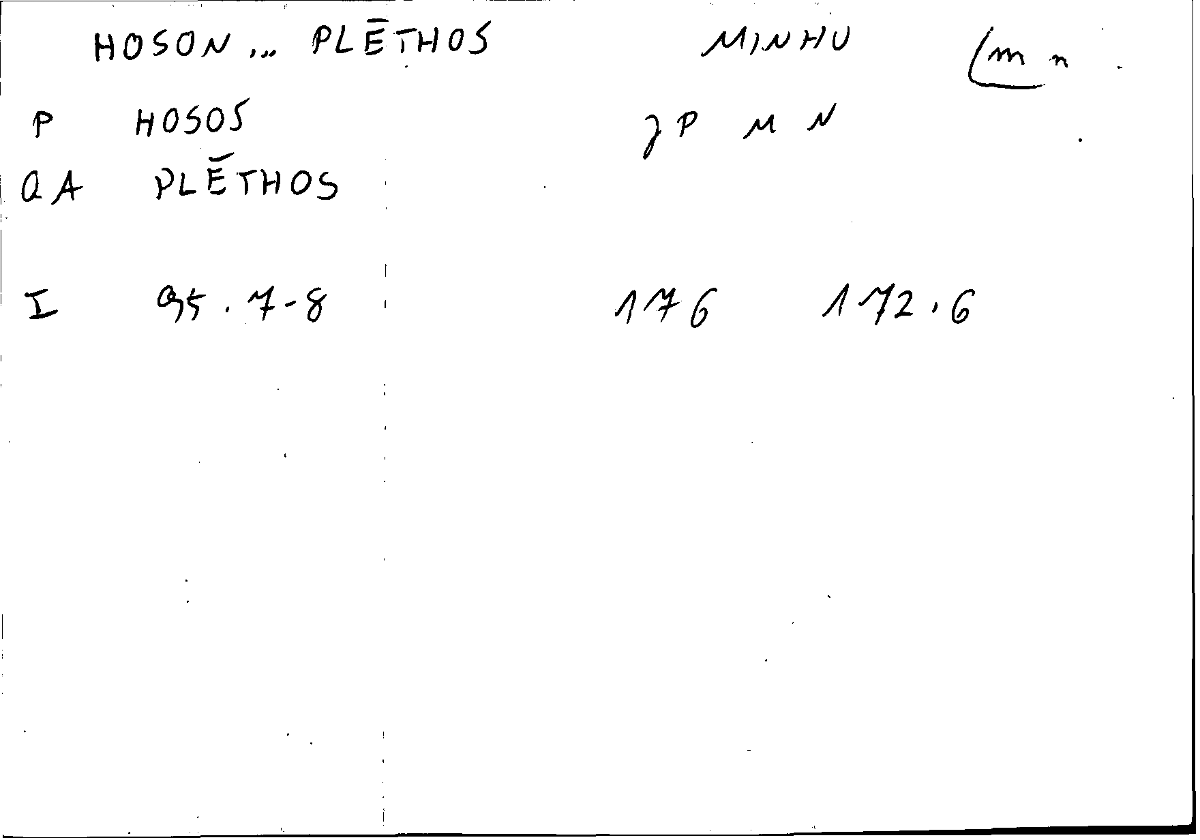 HOSON ... PLĒTHOS MINHU (m n
P HOSOS P M N
QA PLĒTHOS
I 95.7-8 176 172.6